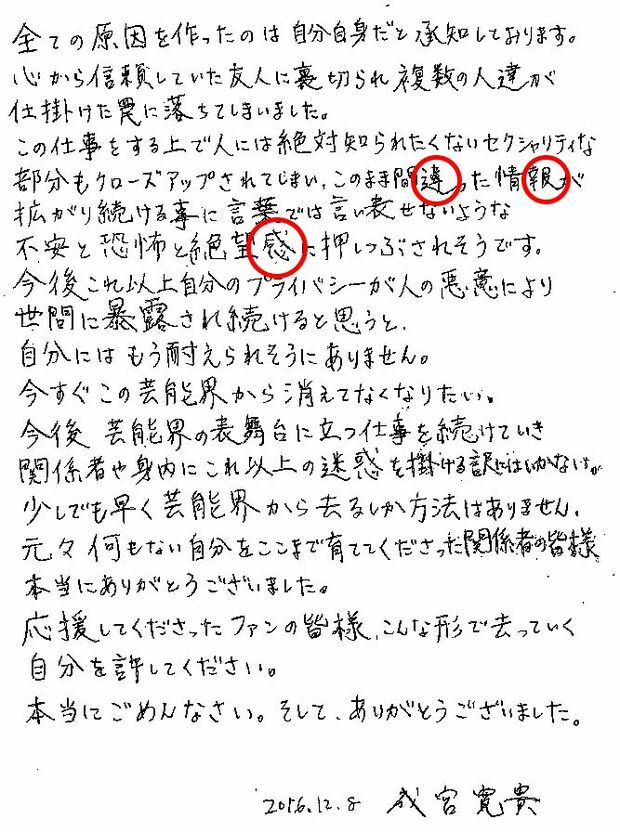 全ての原因を作ったのは自分自身だと承知しております。
心から信頼していた友人に裏切られ複数の人達が
仕掛けた罠に落ちてしまいました。
この仕事をする上で人には絶対知られたくないセクシャリティな
部分もクローズアップされてしまい、このまま間違った情報が
拡がり続ける事に言葉では言い表せないような
不安と恐怖と絶望感に押しつぶされそうです。
今後これ以上自分のプライバシーが人の悪意により
世間に暴露され続けると思うと、
自分にはもう耐えられそうにありません。
今すぐこの芸能界から消えてなくなりたい。
今後芸能界の表舞台に立つ仕事を続けていき
関係者や身内にこれ以上の迷惑を掛ける訳にはいかないが
少しでも早く芸能界から去るしか方法はありません。
元々何もない自分をここまで育ててくださった関係者の皆様
本当にありがとうございました。
応援してくださったファンの皆様、こんな形で去っていく
自分を許してください。
本当にごめんなさい。そして、ありがとうございました。
2016.12.8 成宮寛貴